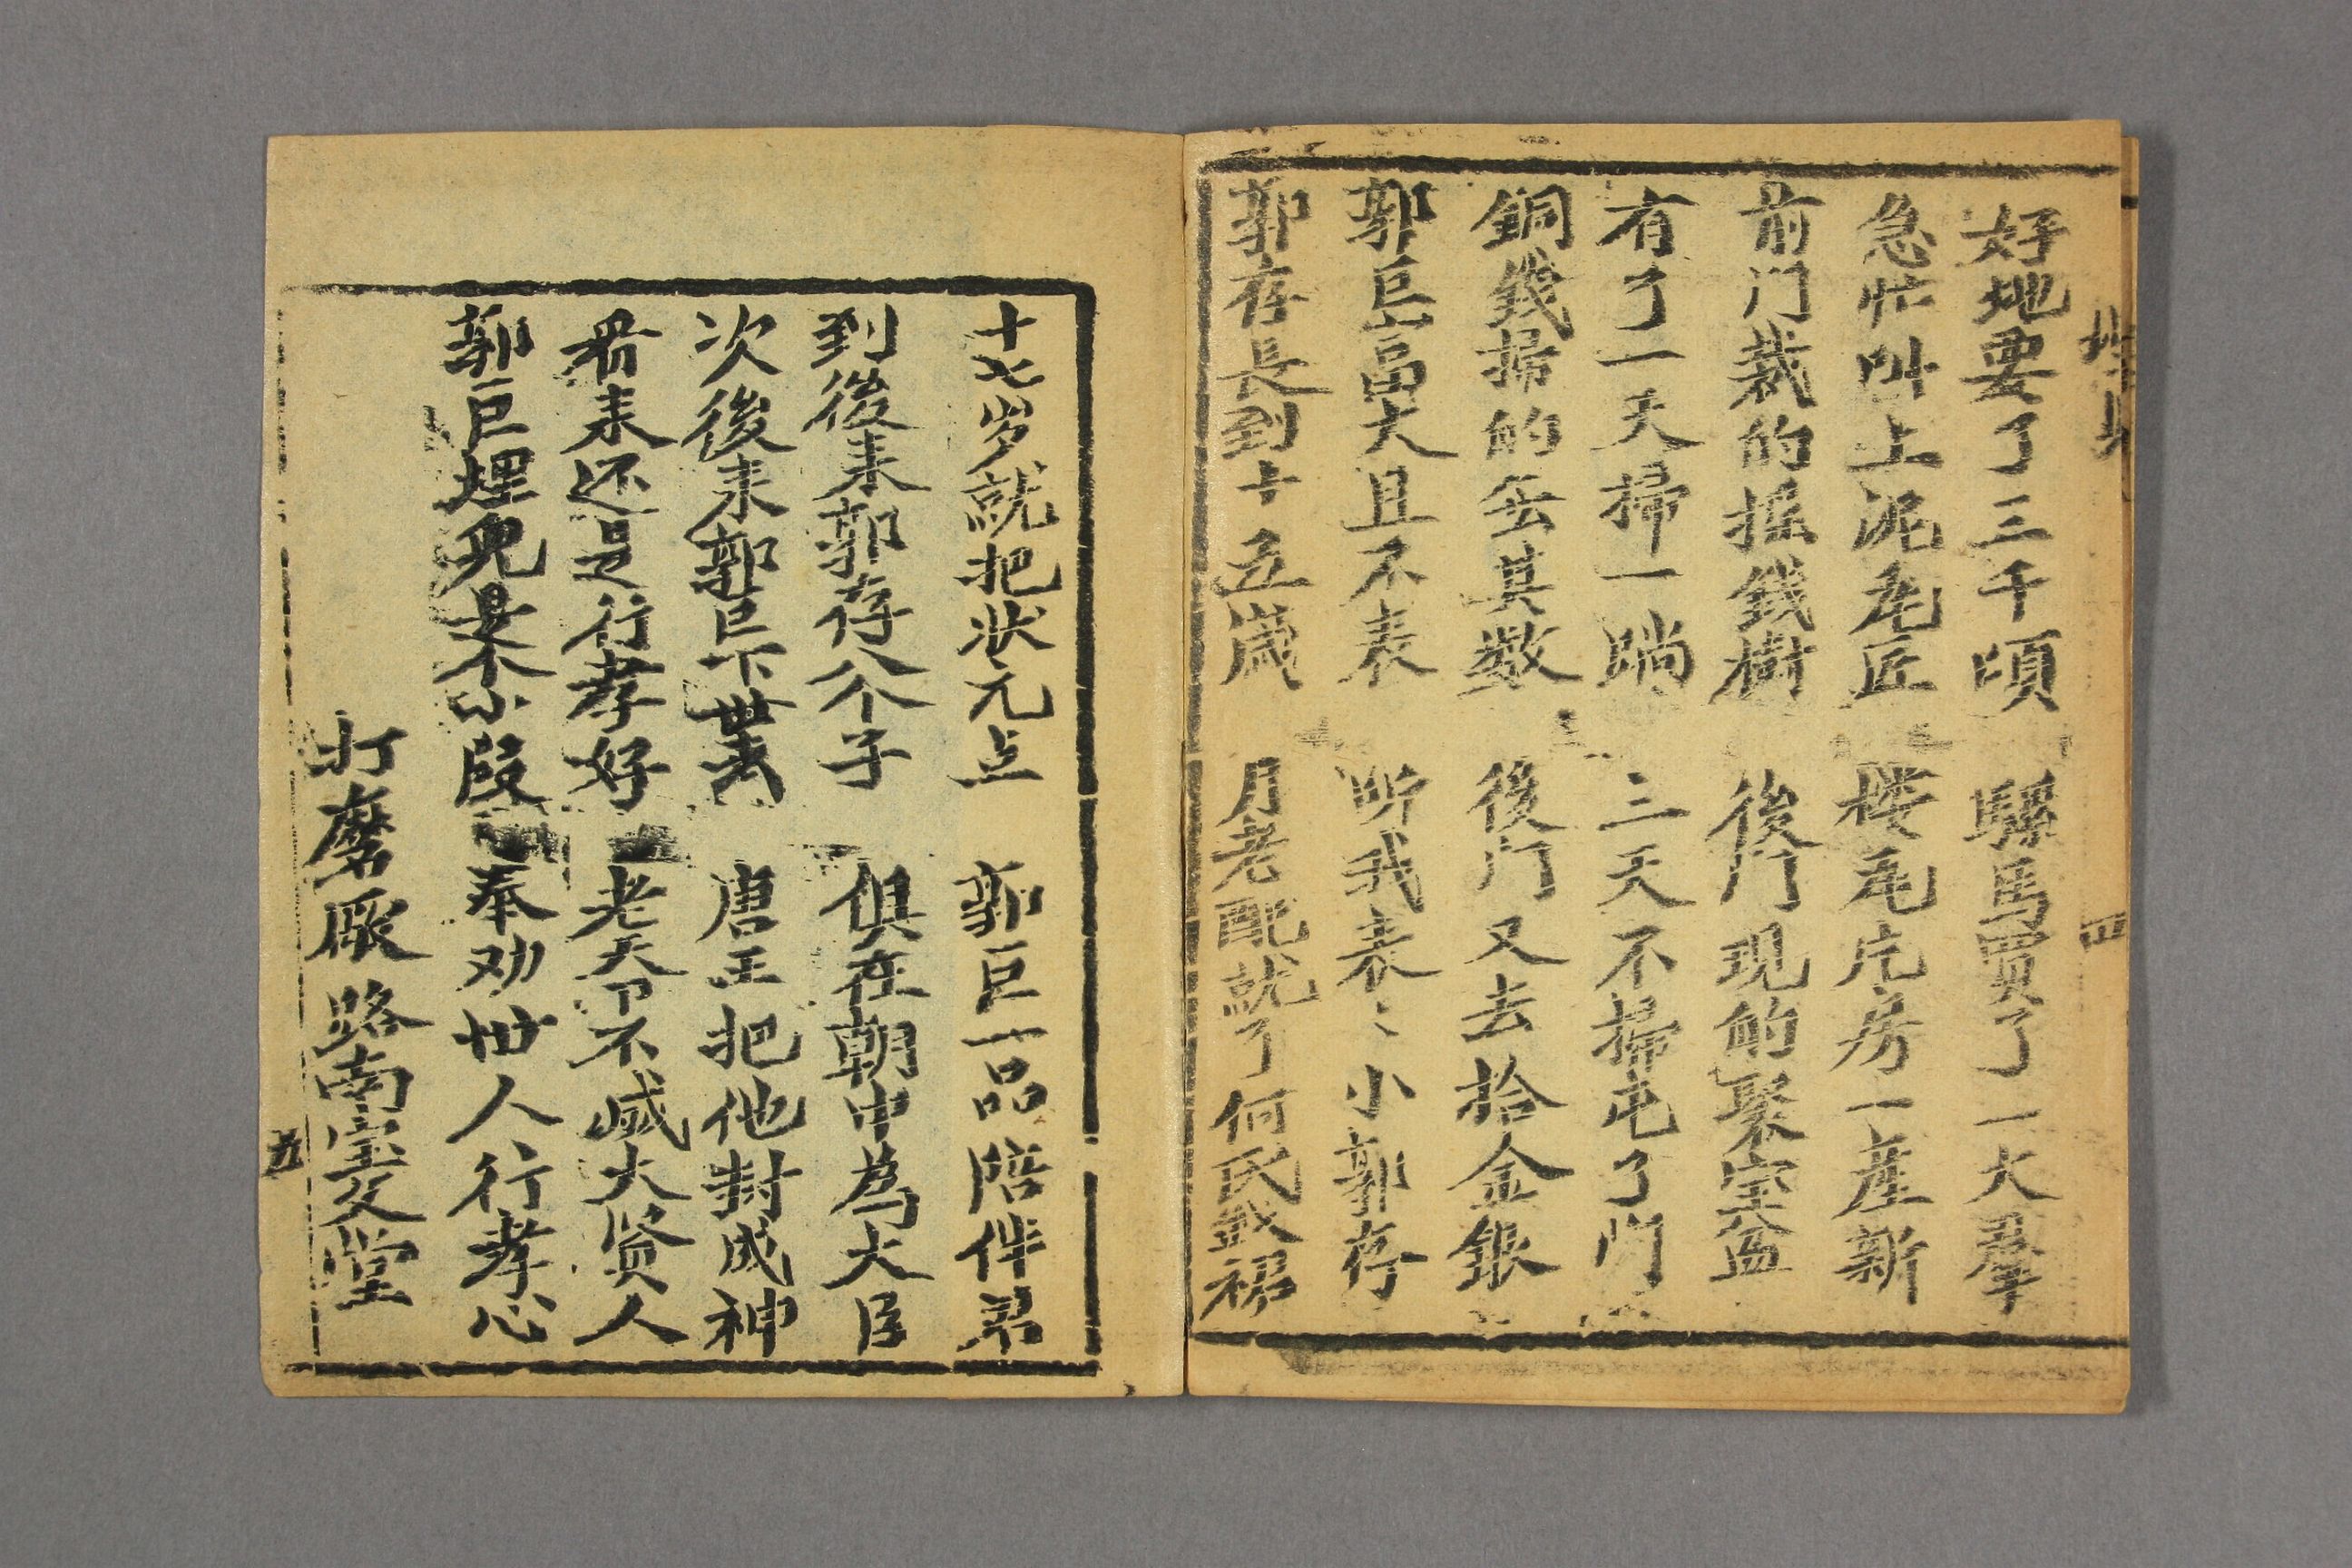 好地要了三千頃 騾馬買了一大羣
急忙叫上泥瓦匠 楼瓦庀房一産新
前门栽的摇錢樹 後门现的聚宝盆
有了一天掃一蹚 三天不掃屯了门
銅錢掃的去其数 後门又去拾金銀
郭巨富大且不表 听我表〻小郭存
郭存長到十五歲 月老配就了何氏釵裙
四
十七岁就把状元点 郭巨一品陪伴君
到後来郭存八个子 俱在朝中為大臣
次後来郭巨下世去 唐王把他封成神
看来还是行孝好 老天爷不滅大贤人
郭巨埋兒是个小段 奉劝世人行孝心
打磨厰路南宝文堂
五